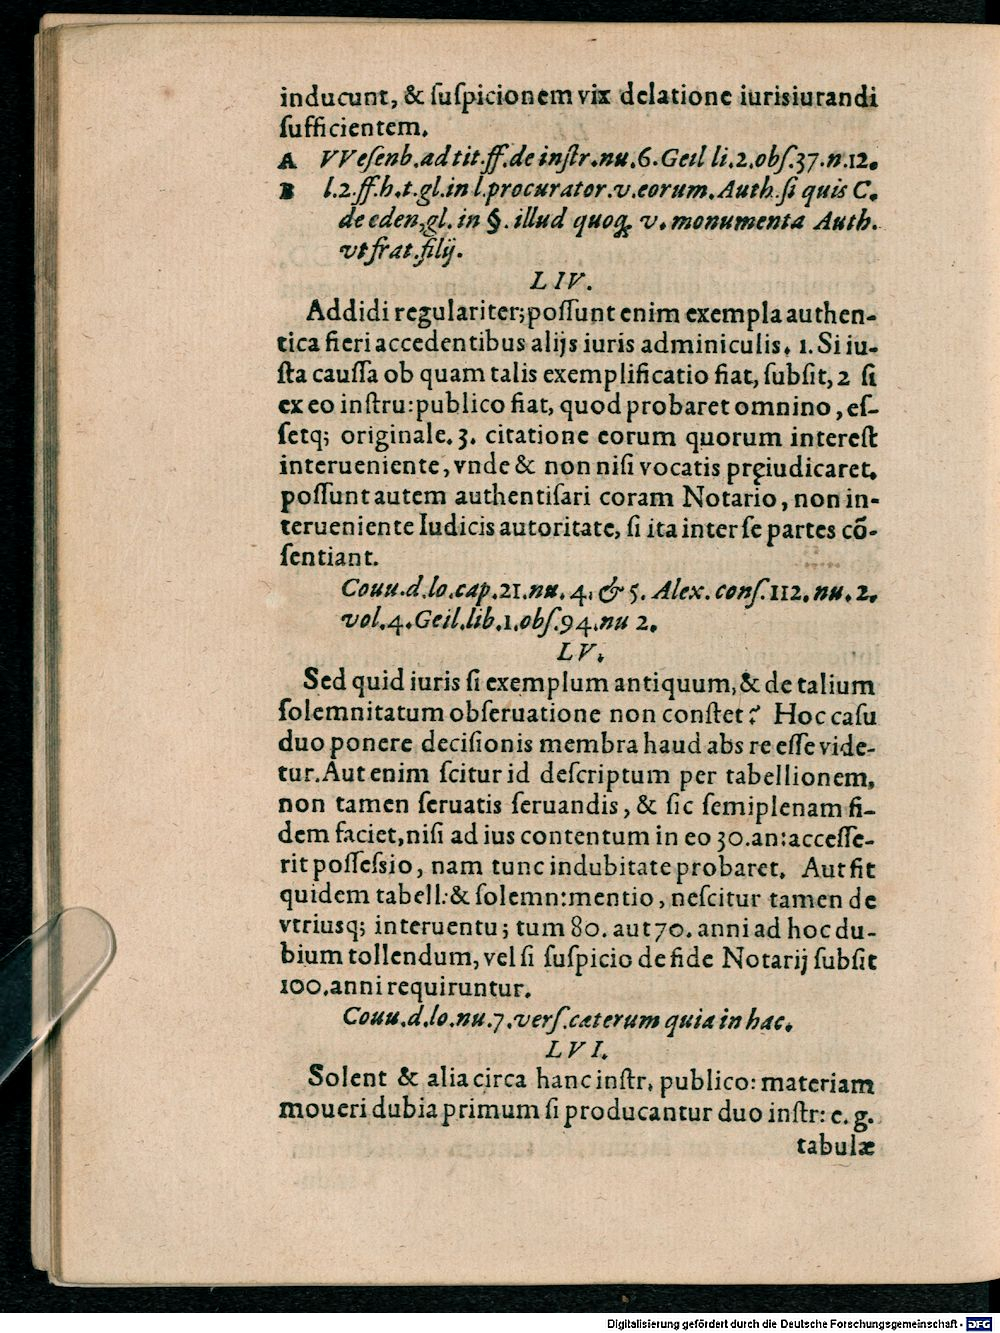 inducunt, & ſuſpicionem vix delatione iurisiurandi
ſufficientem.
A VVeſenb. ad tit. ff. de inſtr. nu. 6. Geil li. 2. obſ. 37. n. 12.
B l. 2. ff. h. t. gl. in l. procurator. v. eorum. Auth. ſi quis C.
de eden, gl. in §. illud quoq; v. monumenta Auth.
vt frat. filij.
LIV.
Addidi regulariter; poſſunt enim exempla authen-
tica fieri accedentibus alijs iuris adminiculis. 1. Si iu-
ſta cauſſa ob quam talis exemplificatio fiat, ſubſit, 2 ſi
ex eo inſtru: publico fiat, quod probaret omnino, eſ-
ſetq; originale. 3. citatione eorum quorum intereſt
interueniente, vnde & non niſi vocatis pręiudicaret.
poſſunt autem authentiſari coram Notario, non in-
terueniente Iudicis autoritate, ſi ita inter ſe partes cō-
ſentiant.
Couu. d. lo. cap. 21. nu. 4, & 5. Alex. conſ. 112. nu. 2.
vol. 4. Geil. lib. 1. obſ. 94. nu 2.
LV.
Sed quid iuris ſi exemplum antiquum, & de talium
ſolemnitatum obſeruatione non conſtet? Hoc caſu
duo ponere deciſionis membra haud abs re eſſe vide-
tur. Aut enim ſcitur id deſcriptum per tabellionem,
non tamen ſeruatis ſeruandis, & ſic ſemiplenam fi-
dem faciet, niſi ad ius contentum in eo 30. an: acceſſe-
rit poſſeſsio, nam tunc indubitate probaret. Aut fit
quidem tabell: & ſolemn: mentio, neſcitur tamen de
vtriusq; interuentu; tum 80. aut 70. anni ad hoc du-
bium tollendum, vel ſi ſuſpicio de fide Notarij ſubſit
100. anni requiruntur.
Couu. d. lo. nu. 7. verſ. cæterum quia in hac.
LVI.
Solent & alia circa hanc inſtr. publico: materiam
moueri dubia primum ſi producantur duo inſtr: e. g.
tabulæ
Digitalisierung gefördert durch die Deutsche Forschungsgemeinschaft - DFG